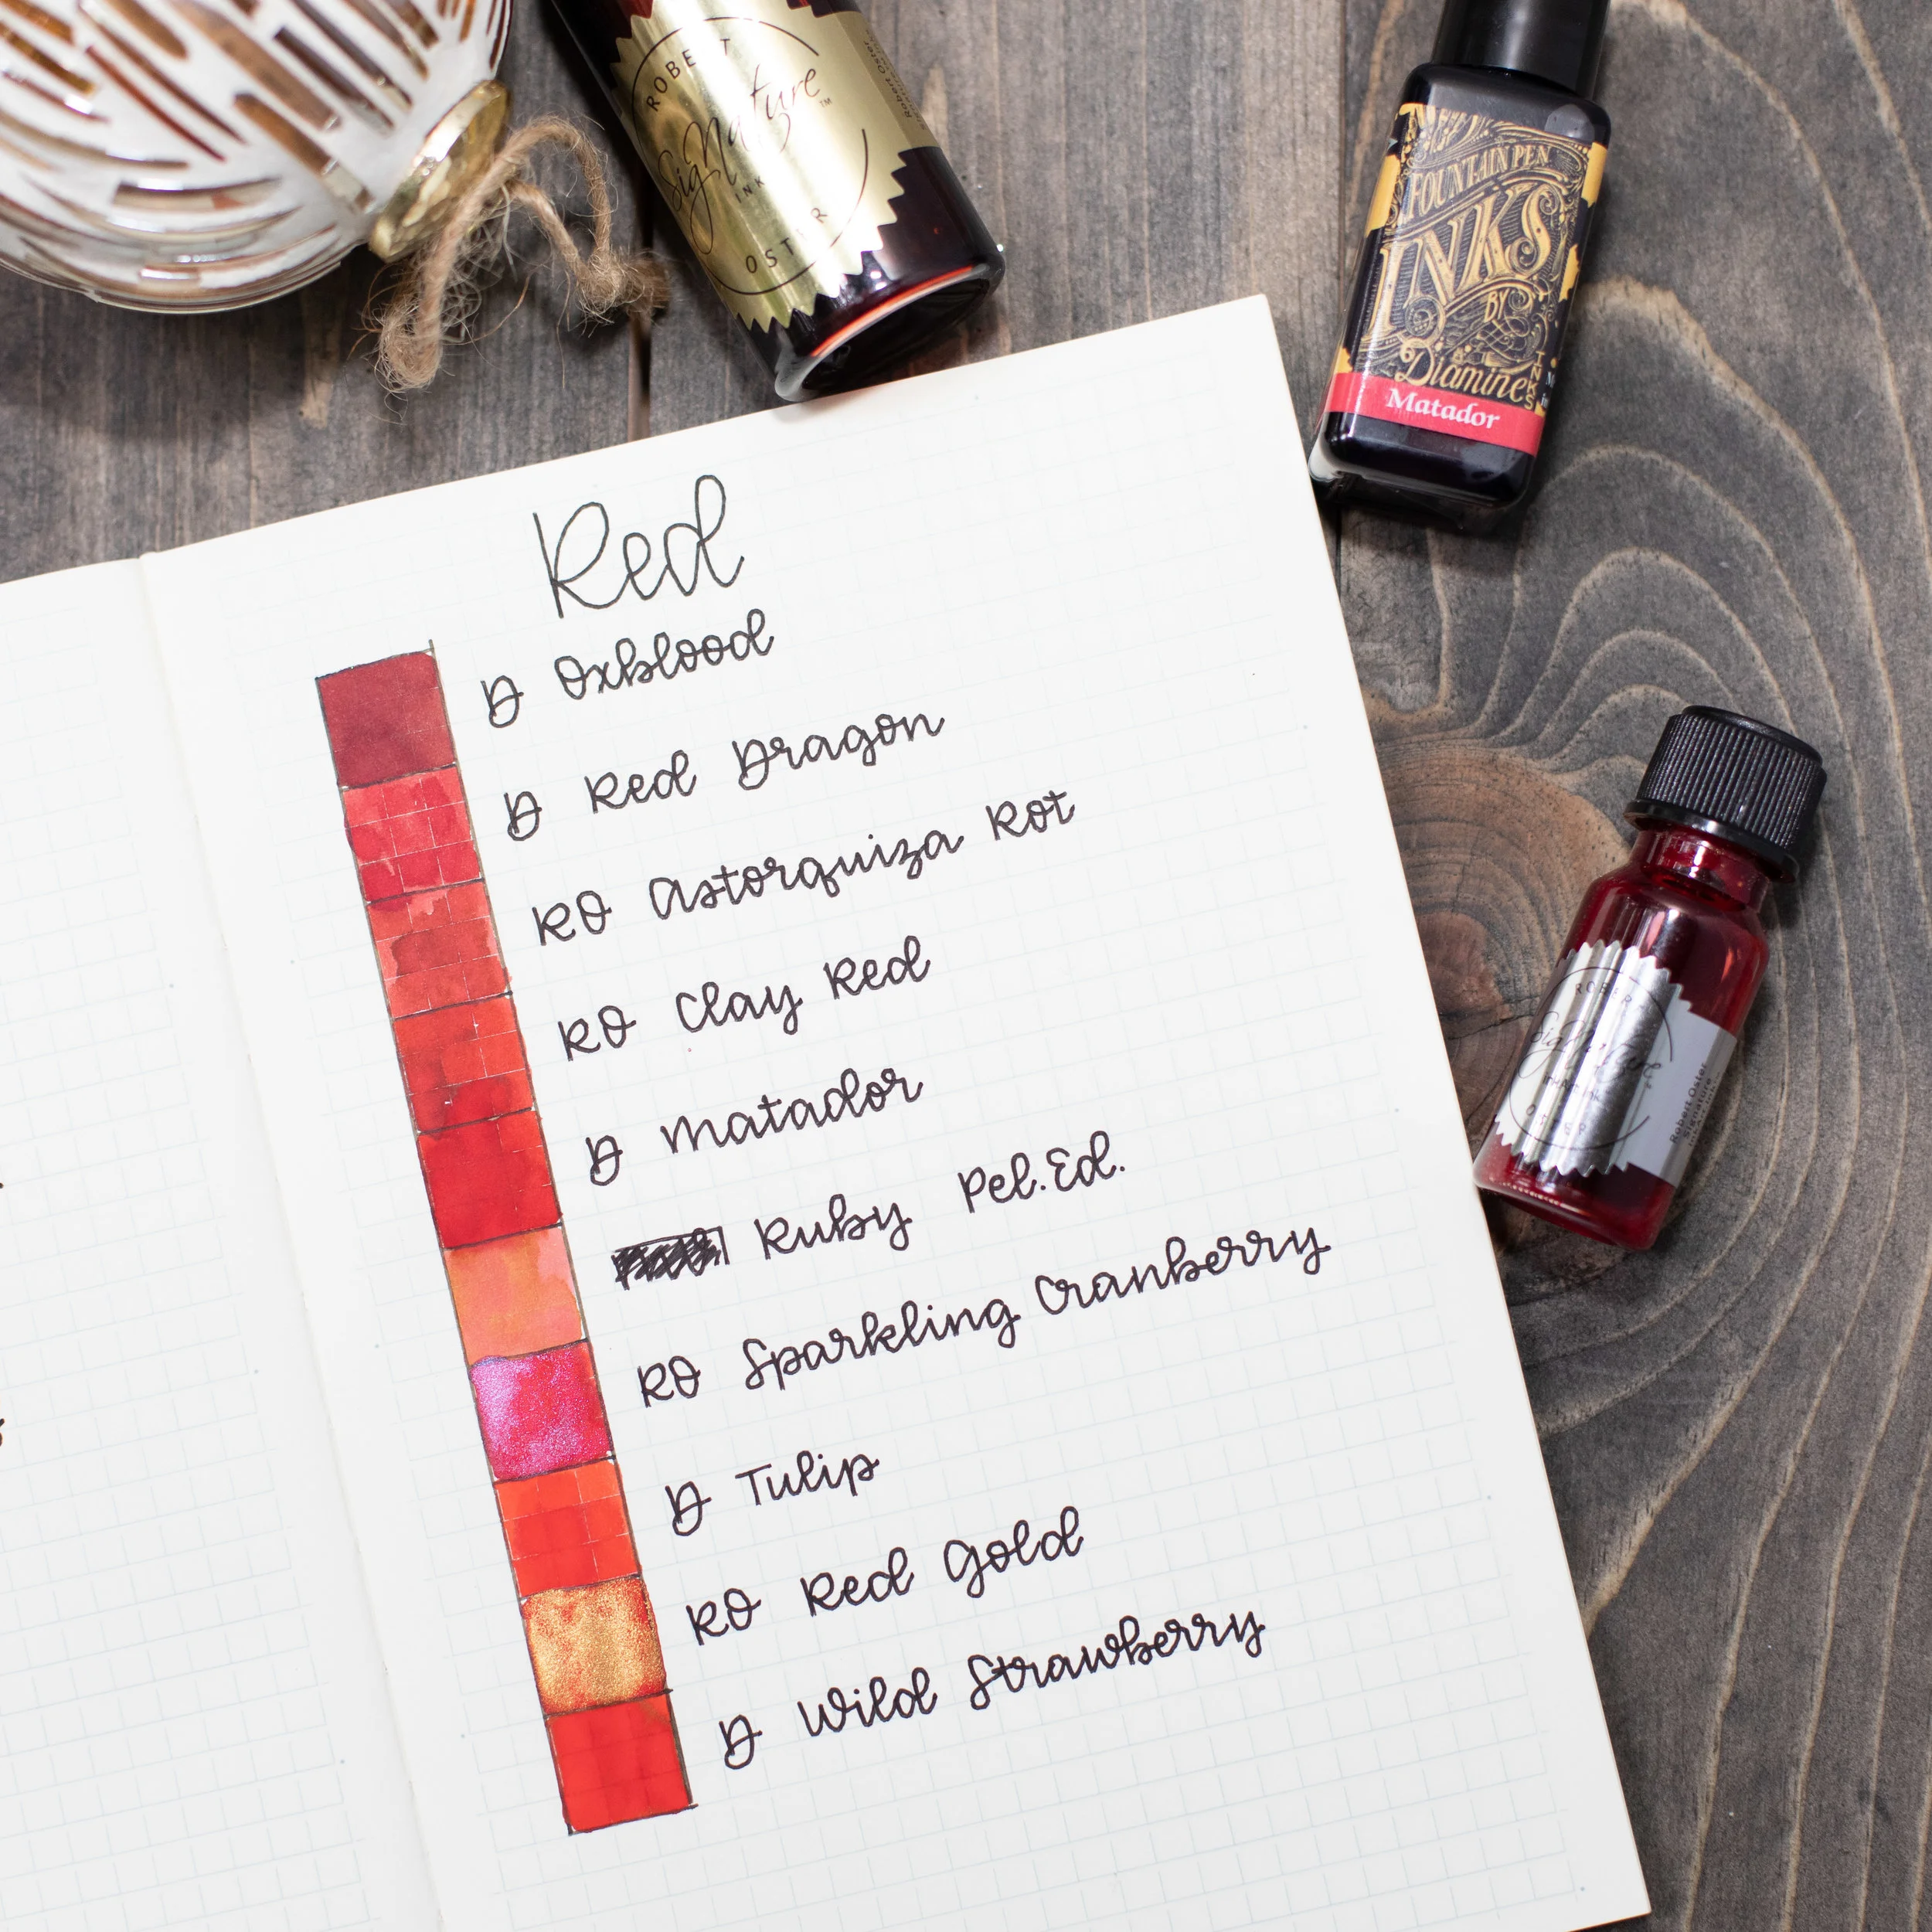 ROBERT
Signature™
INK
OSTER
Robert Oster
FOUNTAIN PEN
INKS
BY
Diamine
INKS
Matador
Red
D Oxblood
D Red Dragon
RO Astorquiza Rot
RO Clay Red
D Matador
Ruby Pel.Ed.
RO Sparkling Cranberry
D Tulip
RO Red Gold
D Wild Strawberry
ROBERT
Signature
OSTER
Robert Oster
Signature